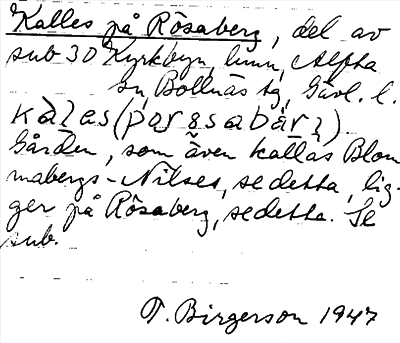 Kalles på Rösaberg, del av
sub 30 Kyrkbyn, Alfta
sn, Bollnäs tg, Gävl. l.
Gården, som även kallas Blom
mabergs-Nilses, se detta, lig-
ger på Rösaberg, se detta. Se
sub.
T. Birgerson 1947